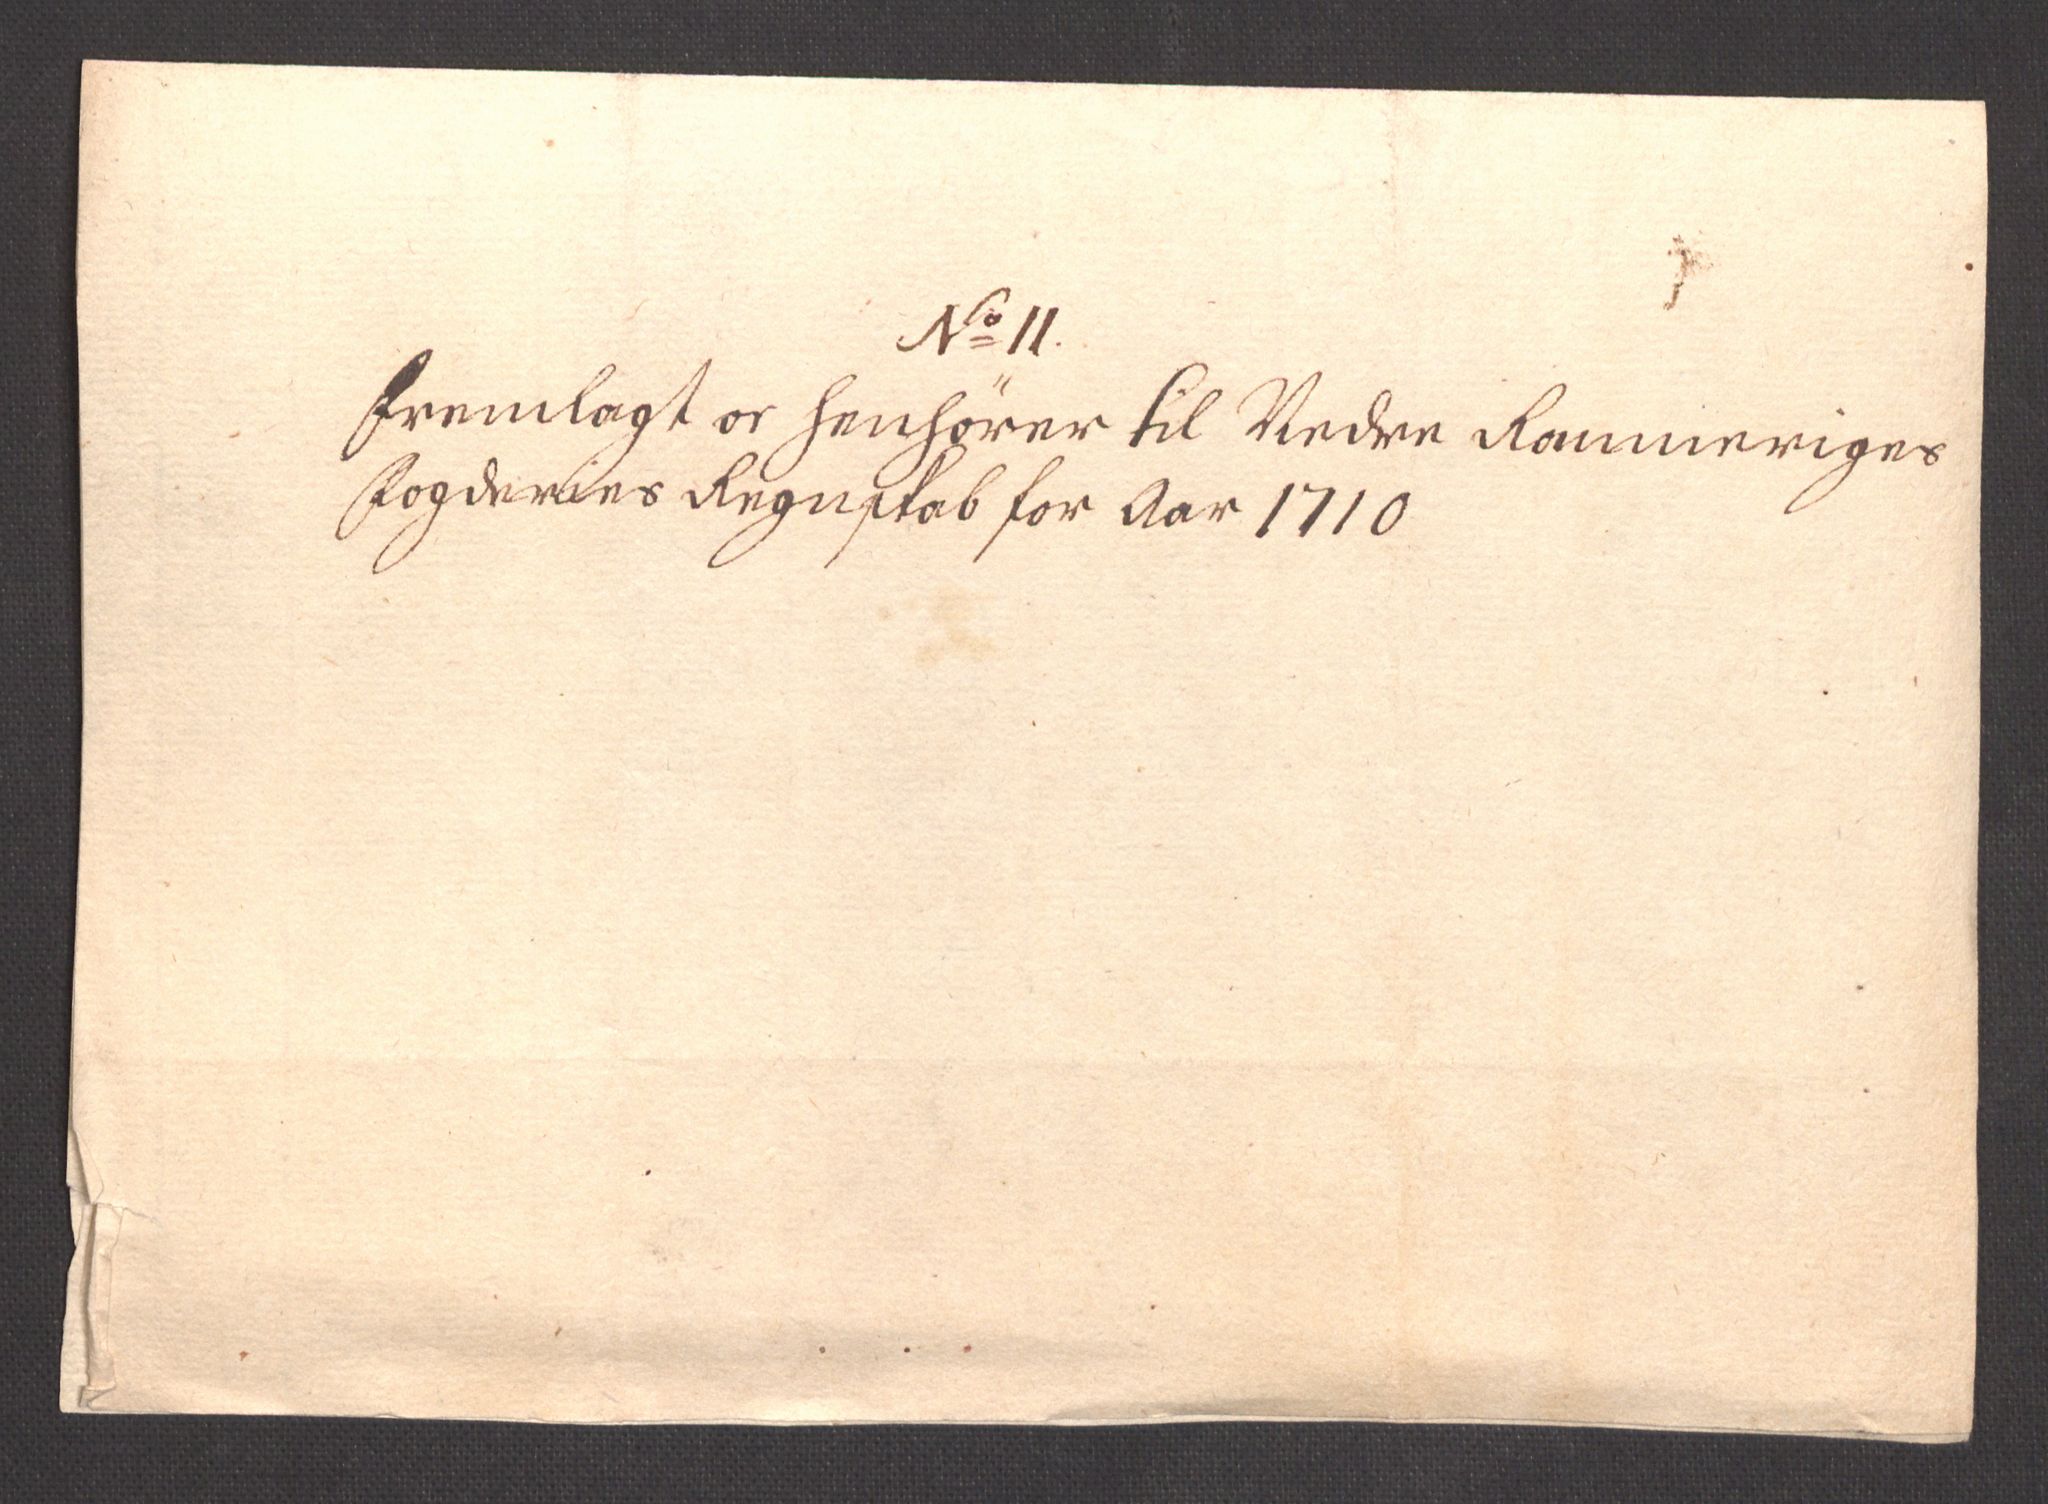 No 11.
Fremlagt oc henhörer til Nedre Rommeriges
Fogderies Regnskab for Aar 1710